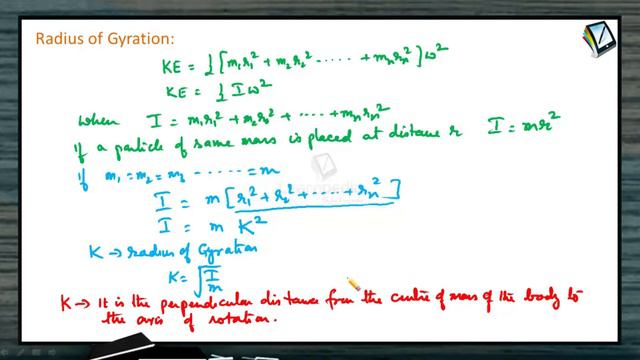 Radius of Gyration:
KE = ½ [m₁r₁² + m₂r₂² ------ + mₙrₙ²] ω²
KE = ½ I ω²
when I = m₁r₁² + m₂r₂² + ---- + mₙrₙ²
if a particle of same mass is placed at distance r I = mr²
if m₁ = m₂ = m₃ ------ = m
I = m [r₁² + r₂² + ---- + rₙ²]
I = m K²
K → radius of Gyration
K = √(I/m)
K → It is the perpendicular distance from the centre of mass of the body to
the axis of rotation.